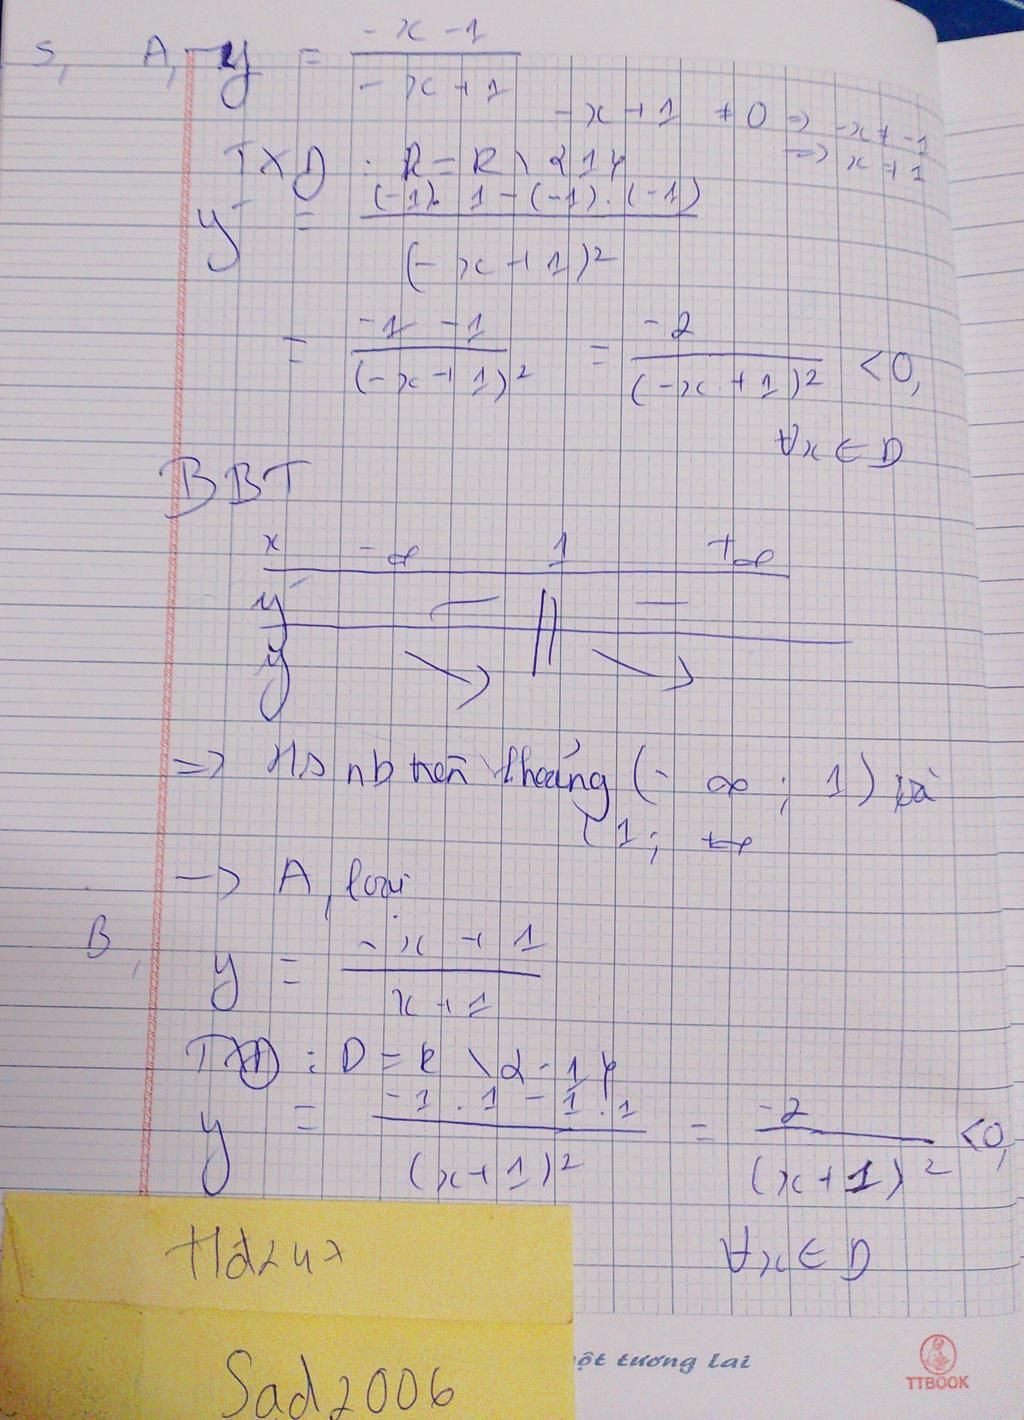 5, A, y = \frac{-x-1}{-x+1}
-x+1 ≠ 0 => -x ≠ -1
=> x ≠ 1
TXD : R = R \ {1}
y' = \frac{(-1).1-(-1).(-1)}{(-x+1)^2}
= \frac{-1-1}{(-x+1)^2} = \frac{-2}{(-x+1)^2} <0,
∀x ∈ D
BBT
x -∞ 1 +∞
y' - || -
y ↘ || ↘
=> Hs nb trên khoảng (-∞ ; 1) và
(1; +∞
-> A, loại
B, y = \frac{-x+1}{x+1}
TXD : D = R \ {-1}
y = \frac{-1.1-1.1}{(x+1)^2} = \frac{-2}{(x+1)^2} <0,
∀x ∈ D
Hd247
Sad2006
ột tương lai
TTBOOK